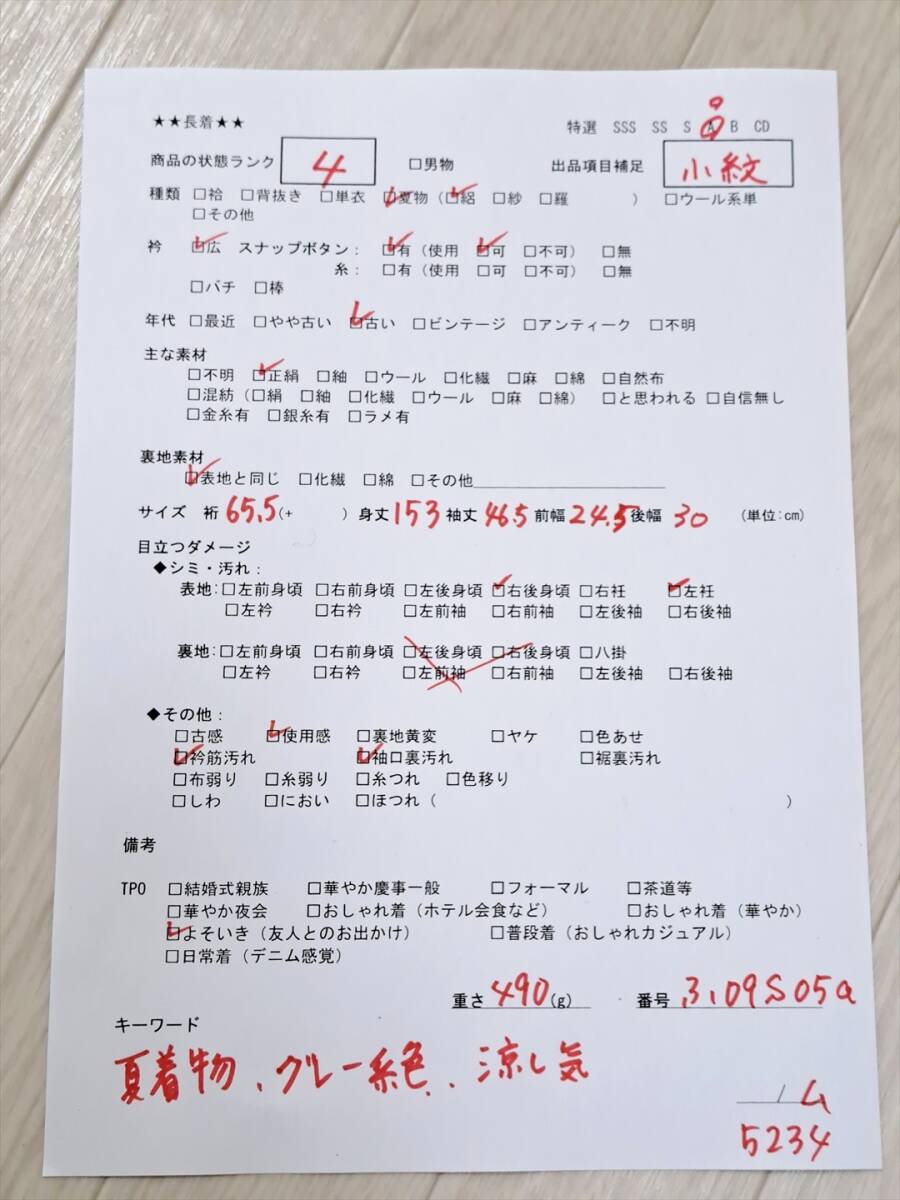 ★★長着★★ 特選 SSS SS S A B CD
商品の状態ランク 4 □男物 出品項目補足 小紋
種類 □袷 □背抜き □単衣 ☑夏物（☑絽 □紗 □羅 ） □ウール系単
□その他
衿 ☑広 スナップボタン： ☑有（使用 ☑可 □不可） □無
糸：□有（使用 □可 □不可） □無
□バチ □棒
年代 □最近 □やや古い ☑古い □ビンテージ □アンティーク □不明
主な素材
□不明 ☑正絹 □紬 □ウール □化繊 □麻 □綿 □自然布
□混紡（□絹 □紬 □化繊 □ウール □麻 □綿） □と思われる □自信無し
□金糸有 □銀糸有 □ラメ有
裏地素材
☑表地と同じ □化繊 □綿 □その他
サイズ 裄 65.5(+ ) 身丈 153 袖丈 46.5 前幅 24.5 後幅 30 (単位:cm)
目立つダメージ
◆シミ・汚れ：
表地:□左前身頃 □右前身頃 □左後身頃 ☑右後身頃 □右衽 ☑左衽
□左衿 □右衿 □左前袖 □右前袖 □左後袖 □右後袖
裏地:□左前身頃 □右前身頃 □左後身頃 □右後身頃 □八掛
□左衿 □右衿 □左前袖 □右前袖 □左後袖 □右後袖
◆その他：
□古感 ☑使用感 □裏地黄変 □ヤケ □色あせ
☑衿筋汚れ ☑袖口裏汚れ □裾裏汚れ
□布弱り □糸弱り □糸つれ □色移り
□しわ □におい □ほつれ（ ）
備考
TPO □結婚式親族 □華やか慶事一般 □フォーマル □茶道等
□華やか夜会 □おしゃれ着（ホテル会食など） □おしゃれ着（華やか）
☑よそいき（友人とのお出かけ） □普段着（おしゃれカジュアル）
□日常着（デニム感覚）
重さ 490 (g) 番号 3109S05a
キーワード
夏着物、グレー系色、涼し気
/
5234